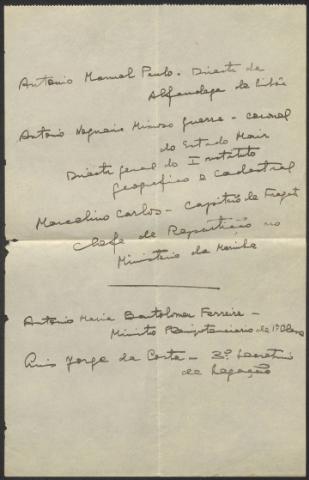 Antonio Manuel Pinto - Director da
Alfandega de Lisboa
Antonio Nogueira Mimoso Guerra - coronel
do Estado Maior
Director geral do Instituto
geografico e cadastral
Marcelino Carlos - Capitão de Fragata
Chefe de Repartição no
Ministerio da Marinha
Antonio Maria Bartolomeu Ferreira -
Ministro Plenipotenciario de 1ª Classe
Luis Jorge da Costa - 3º Secretario
de Legação